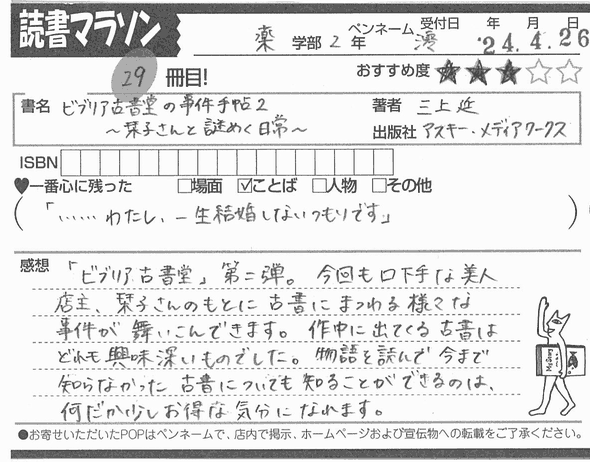 読書マラソン
薬 学部 2 年 ペンネーム 澪 受付日 年 月 日
'24.4.26
29 冊目! おすすめ度 ★★★☆☆
書名 ビブリア古書堂の事件手帖2 著者 三上延
～栞子さんと謎めく日常～ 出版社 アスキー・メディアワークス
ISBN
♥一番心に残った □場面 ☑ことば □人物 □その他
(「……わたし、一生結婚しないつもりです」)
感想 「ビブリア古書堂」第二弾。今回も口下手な美人
店主、栞子さんのもとに古書にまつわる様々な
事件が舞いこんできます。作中に出てくる古書は
どれも興味深いものでした。物語を読んで今まで
知らなかった古書についても知ることができるのは、
何だか少しお得な気分になれます。
●お寄せいただいたPOPはペンネームで、店内で掲示、ホームページおよび宣伝物への転載をご了承ください。